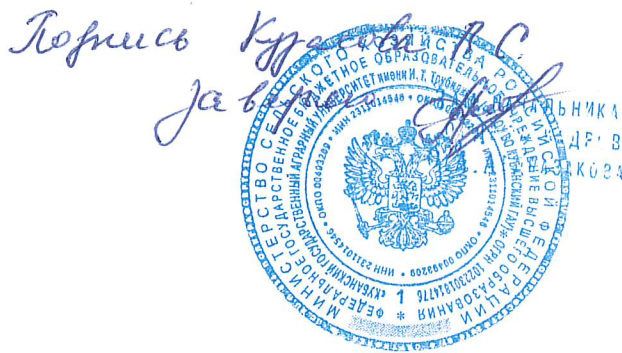 Подпись А.С.
заверяю
НАЧАЛЬНИКА
МИНИСТЕРСТВО СЕЛЬСКОГО ХОЗЯЙСТВА РОССИЙСКОЙ ФЕДЕРАЦИИ
ФЕДЕРАЛЬНОЕ ГОСУДАРСТВЕННОЕ БЮДЖЕТНОЕ ОБРАЗОВАТЕЛЬНОЕ УЧРЕЖДЕНИЕ ВЫСШЕГО ОБРАЗОВАНИЯ *
«КУБАНСКИЙ ГОСУДАРСТВЕННЫЙ АГРАРНЫЙ УНИВЕРСИТЕТ ИМЕНИ И.Т. ТРУБИЛИНА» КУБАНСКИЙ ГАУ * ОГРН
ИНН 2311014546 * ОКПО 00493209 * ИНН 2311014546 * ОКПО 00493209 *
1